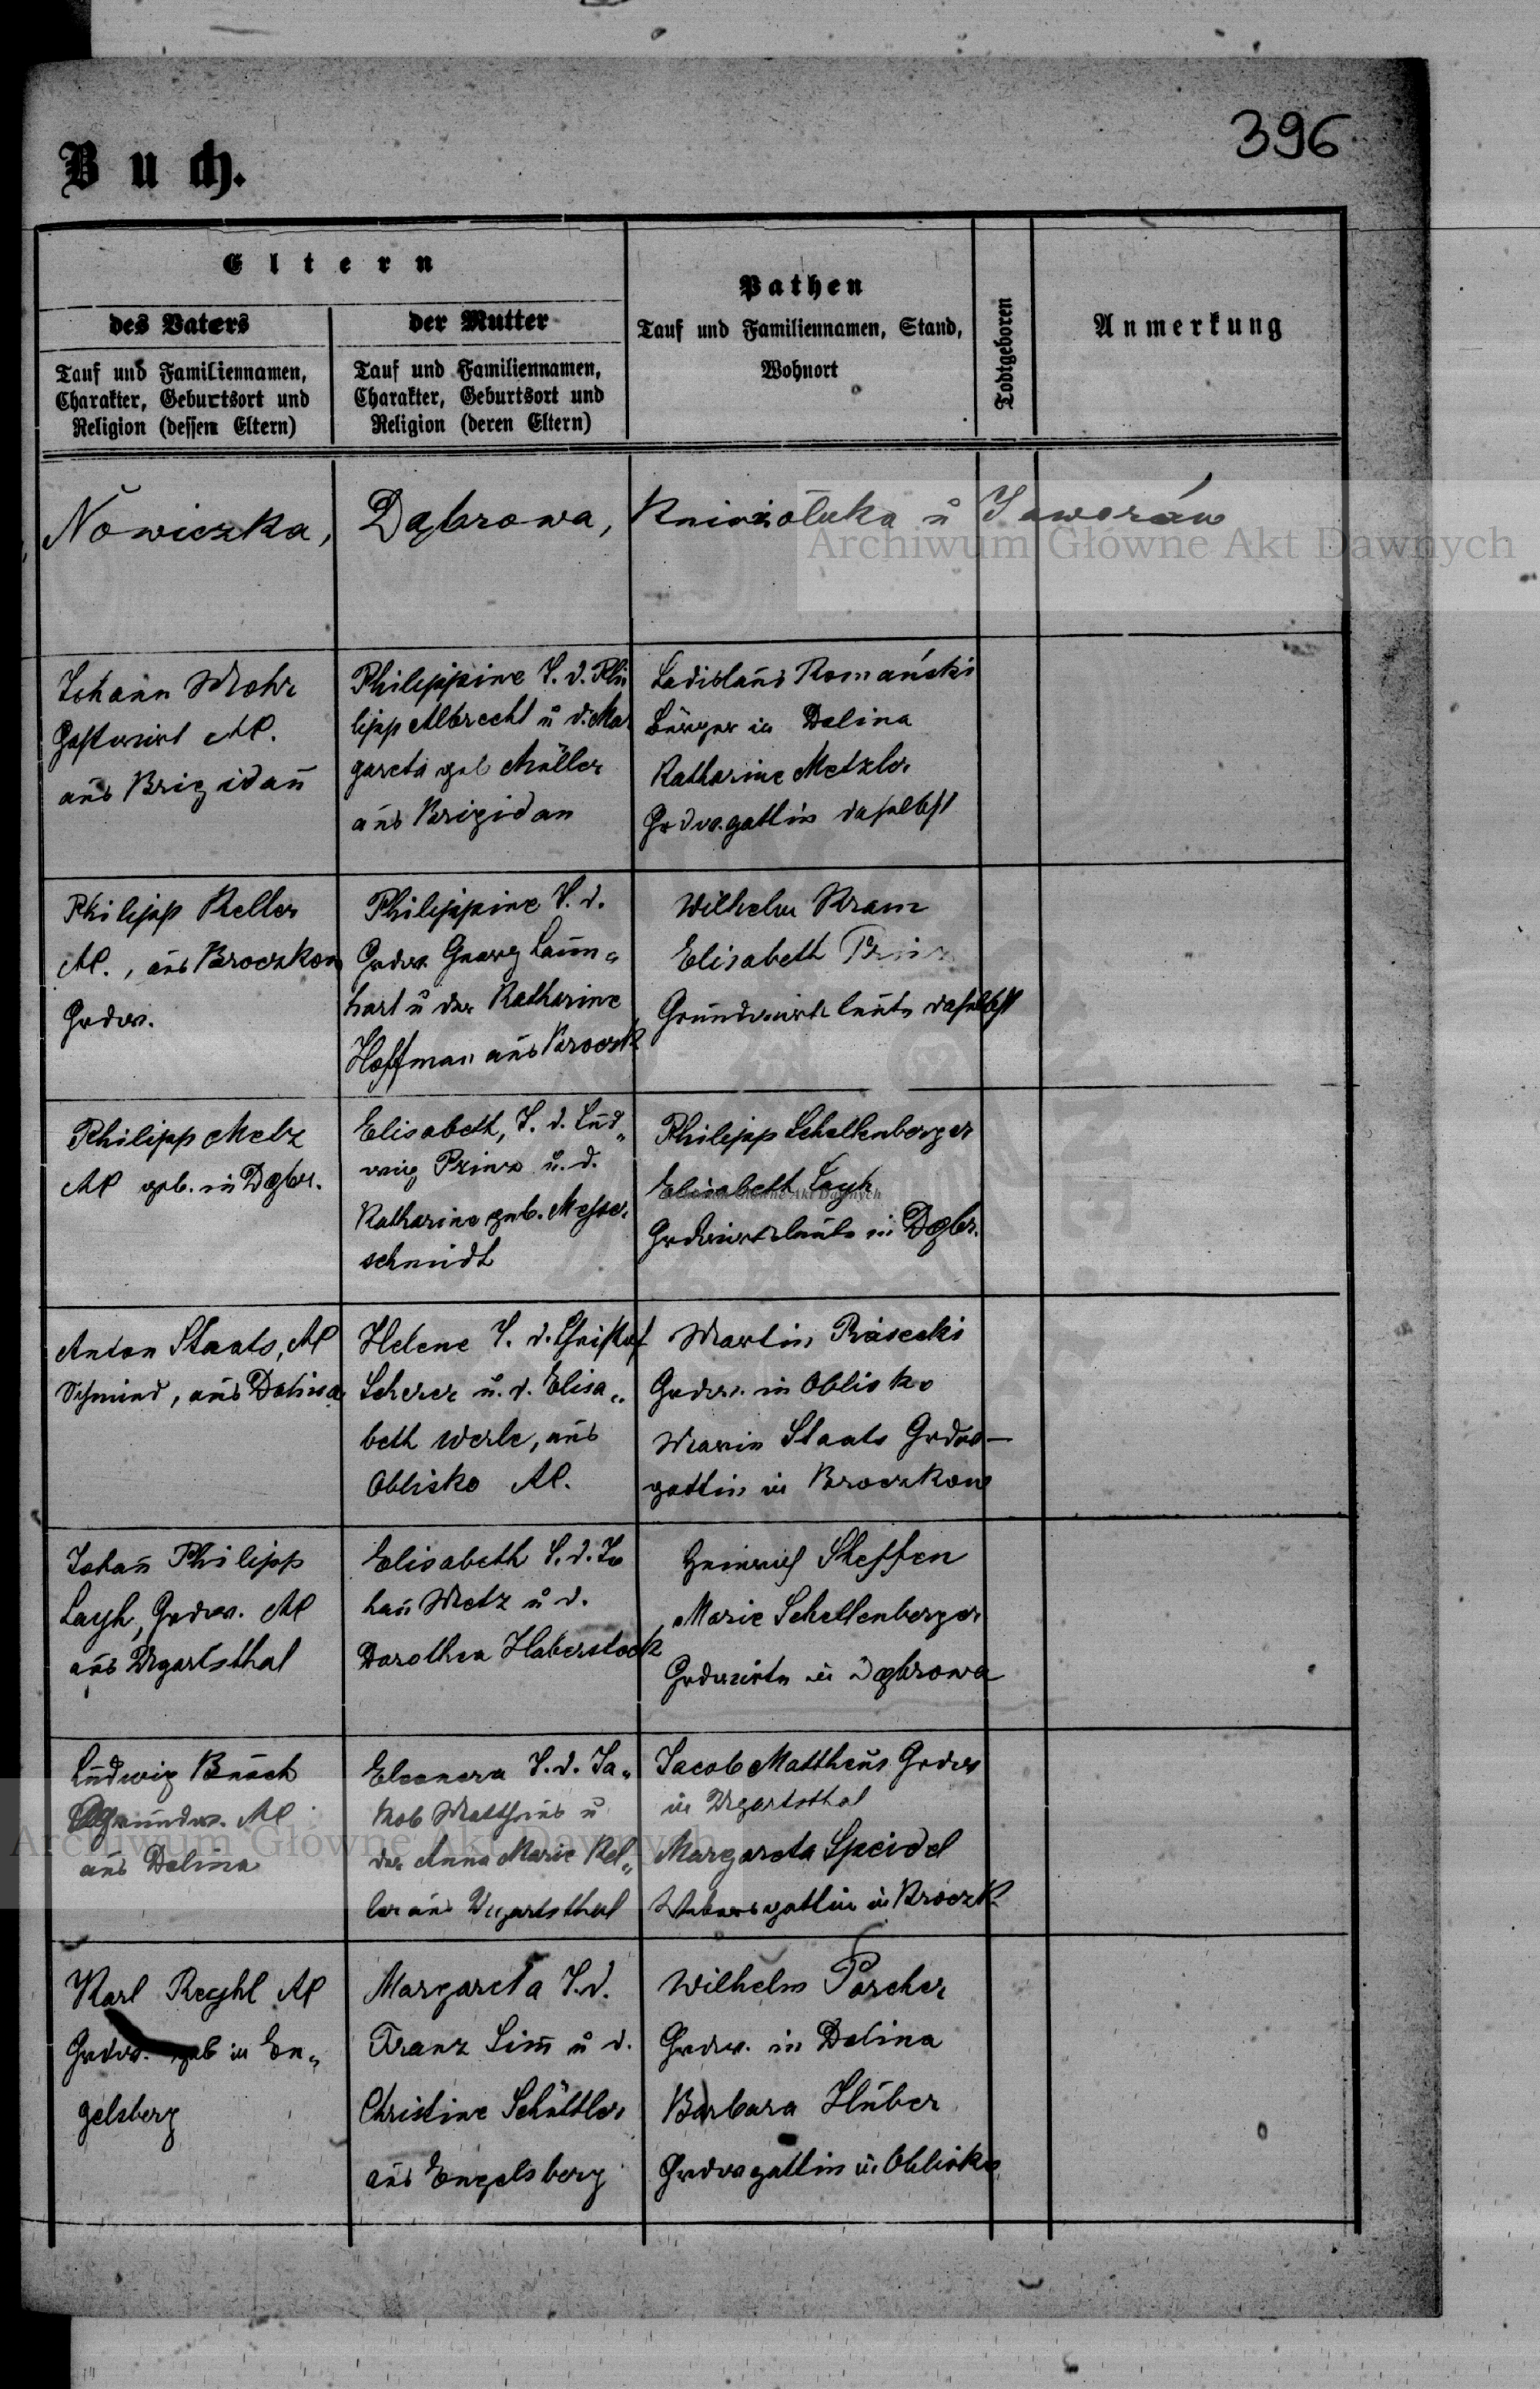 396
Buch.
Eltern
des Vaters
Tauf und Familiennamen,
Charakter, Geburtsort und
Religion (dessen Eltern)
der Mutter
Tauf und Familiennamen,
Charakter, Geburtsort und
Religion (deren Eltern)
Pathen
Tauf und Familiennamen, Stand,
Wohnort
Todtgeboren
Anmerkung
Nowiczka, Dąbrowa, Kniaziołuka ŭ Jaworów
Archiwum Główne Akt Dawnych
Johann Mohr
Gastwirt AC.
aus Brigidau
Philippine T. d. Phi
lipp Albrecht ŭ d. Mar
gareta geb Müller
aus Brigidau
Ladislaus Romański
Bürger in Dolina
Katharine Metzler
Grdw.gattin daselbst
Philipp Keller
AC., aus Broczkow
Grdw.
Philippine T. d.
Grdw. Georg Laun„
hart ŭ der Katharine
Hoffman aus Broczk
Wilhelm Kram
Elisabeth
Grundwirtsleute daselbst
Philipp Metz
AC geb. in Dąbr.
Elisabeth, T. d. Lud„
wig Prinz ŭ. d.
Katharine geb. Messer
schmidt
Philipp Schellenberger
Elisabeth Layh
Główne Akt Dawnych
Grdwirtsleute in Dąbr.
Anton Staats, AC
Schmied, aus Dolina
Helene T. d. Christof
Scherer ŭ. d. Elisa„
beth Werle, aus
Oblisko AC.
Martin Piasecki
Grdw. in Oblisko
Marie Staats Grdw—
gattin in Broczkow
Johan̄ Philipp
Layh, Grdw. AC
aus Ugartsthal
Elisabeth T. d. Jo
han̄ Metz ŭ d.
Dorothea Haberstock
Heinrich Steffen
Marie Schellenberger
Grdwirte in Dąbrowa
Ludwig Busch
Grundw. AC
aus Dolina
Eleonora T. d. Ja„
kob Mattheus ŭ
der Anna Marie Kel„
ler aus Ugartsthal
Jacob Mattheus Grdw
in Ugartsthal
Margareta Speidel
Webersgattin in Broczk
Archiwum Główne Akt Dawnych
Karl Reghl AC
Grdw. geb in En„
gelsberg
Margareta T. d.
Franz Sim̄ ŭ d.
Christine Schüttler
aus Engelsberg
Wilhelm Porcher
Grdw. in Dolina
Barbara Huber
Grdwgattin in Oblisko